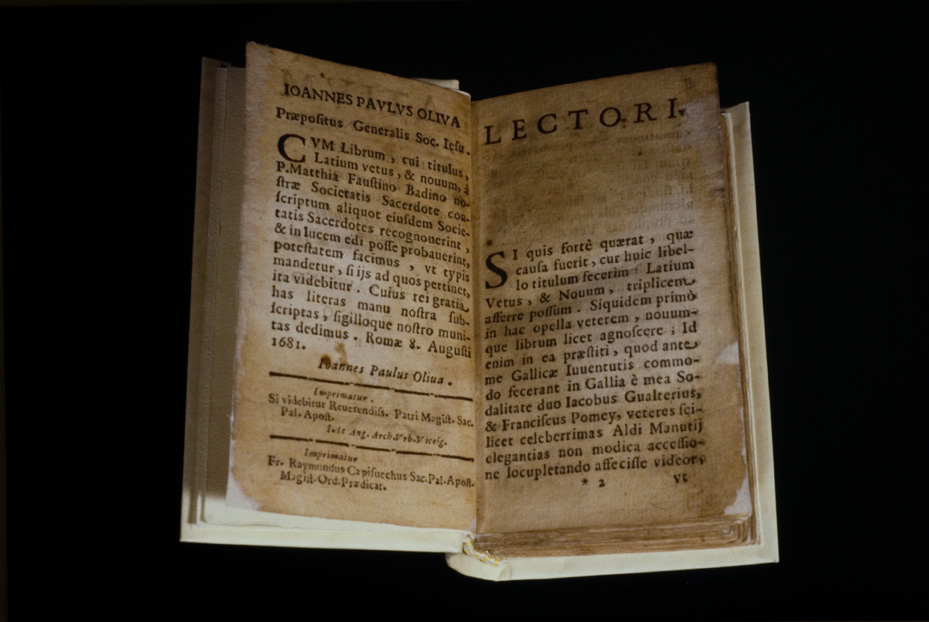 IOANNES PAVLVS OLIVA
Præpositus Generalis Soc. Iesu.
CVM Librum, cui titulus,
Latium vetus, & nouum, à
P. Matthia Faustino Badino no-
stræ Societatis Sacerdote con-
scriptum aliquot eiusdem Socie-
tatis Sacerdotes recognouerint,
& in lucem edi posse probauerint,
potestatem facimus, vt typis
mandetur, si ijs ad quos pertinet,
ita videbitur. Cuius rei gratia
has literas manu nostra sub-
scriptas, sigilloque nostro muni-
tas dedimus. Romæ 8. Augusti
1681.
Ioannes Paulus Oliua.
Imprimatur.
Si videbitur Reuerendiss. Patri Magist. Sac.
Pal. Apost.
Ang. Arch. Vrb. Vicesg.
Imprimatur
Fr. Raymundus Capisucchus Sac. Pal. Apost.
Magist. Ord. Prædicat.
LECTORI.
SI quis fortè quærat, quæ
causa fuerit, cur huic libel-
lo titulum fecerim: Latium
Vetus, & Nouum, triplicem
afferre possum. Siquidem primò
in hac opella veterem, nouum-
que librum licet agnoscere; Id
enim in ea præstiti, quod ante
me Gallicæ Iuuentutis commo-
do fecerant in Gallia è mea So-
dalitate duo Iacobus Gualterius,
& Franciscus Pomey, veteres sci-
licet celeberrimas Aldi Manutij
elegantias non modica accessio-
ne locupletando affecisse videor,
* 2 vt